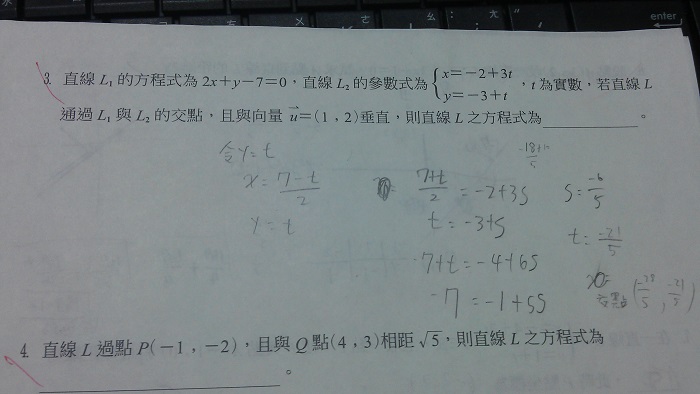 enter
3. 直線 L₁ 的方程式為 2x+y-7=0，直線 L₂ 的參數式為 {x=-2+3t, y=-3+t，t 為實數，若直線 L
通過 L₁ 與 L₂ 的交點，且與向量 u⃗=(1，2)垂直，則直線 L 之方程式為__________。
令y=t
x=(7-t)/2
y=t
(7+t)/2=-2+3s
t=-3+s
7+t=-4+6s
-7=-1+5s
s=-6/5
t=-21/5
交點(-28/5, -21/5)
4. 直線 L 過點 P(-1，-2)，且與 Q 點(4，3)相距 √5，則直線 L 之方程式為
__________。